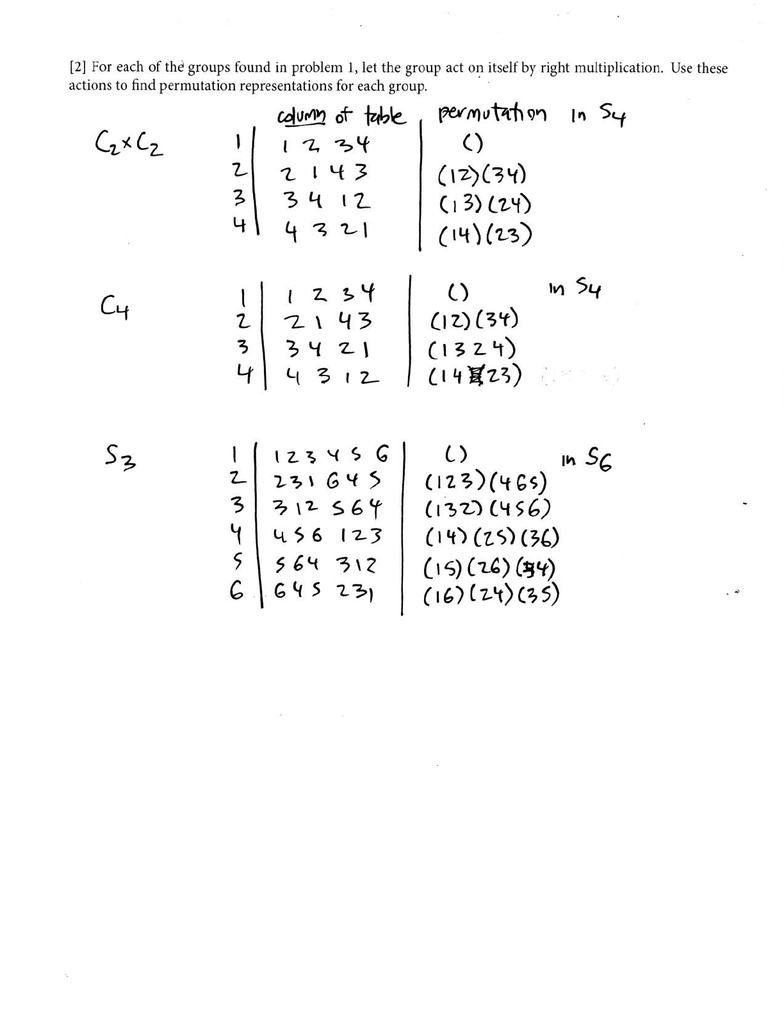 [2] For each of the groups found in problem 1, let the group act on itself by right multiplication. Use these
actions to find permutation representations for each group.
column of table permutation in S4
C2×C2 1 1 2 3 4 ()
2 2 1 4 3 (12)(34)
3 3 4 1 2 (13)(24)
4 4 3 2 1 (14)(23)
C4 1 1 2 3 4 () in S4
2 2 1 4 3 (12)(34)
3 3 4 2 1 (1324)
4 4 3 1 2 (1423)
S3 1 1 2 3 4 5 6 () in S6
2 2 3 1 6 4 5 (123)(465)
3 3 1 2 5 6 4 (132)(456)
4 4 5 6 1 2 3 (14)(25)(36)
5 5 6 4 3 1 2 (15)(26)(34)
6 6 4 5 2 3 1 (16)(24)(35)